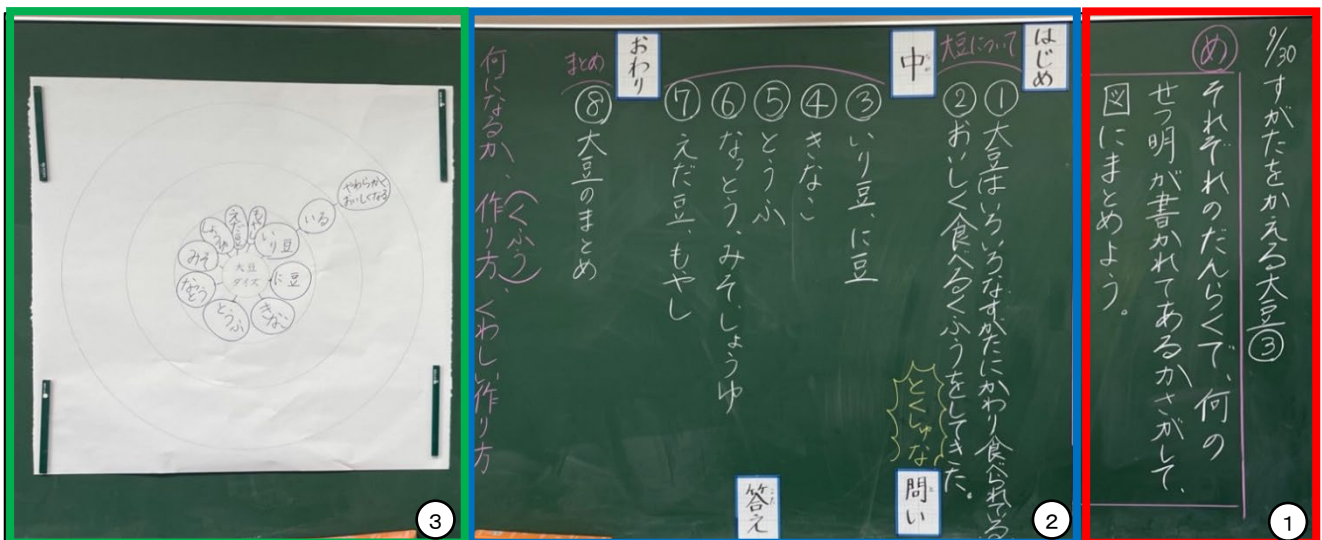 9/30 すがたをかえる大豆③
め
それぞれのだんらくで、何の
せつ明が書かれてあるかさがして、
図にまとめよう。
1
はじめ
大豆について
①大豆はいろいろなすがたにかわり食べられている
②おいしく食べるくふうをしてきた。
とくしゅな
問い
とい
中
なか
③いり豆、に豆
④きなこ
⑤とうふ
⑥なっとう、みそ、しょうゆ
⑦えだ豆、もやし
答え
こた
おわり
まとめ
⑧大豆のまとめ
何になるか、作り方、くわしい作り方
(くふう)
2
やわらかく
おいしくなる
いる
いり豆
に豆
きなこ
とうふ
なっとう
みそ
しょうゆ
えだ豆
もやし
大豆
ダイズ
3